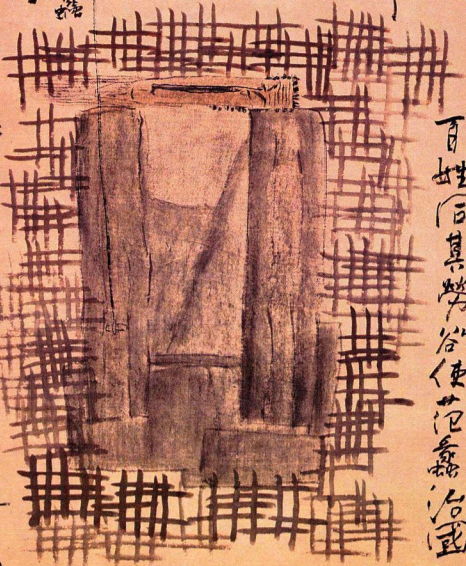 百姓同其勞欲使范蠡治國